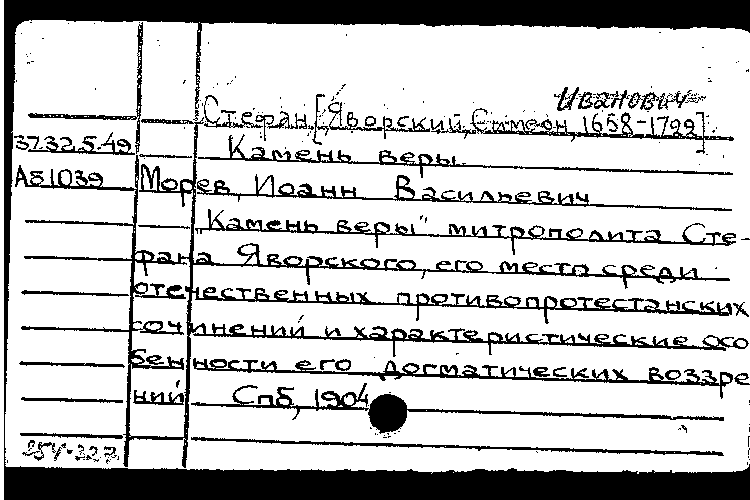 Иванович
Стефан [Яворский, Симеон, 1658-1722]
3732.5.49 Камень веры.
А81039 Морев, Иоанн Васильевич
"Камень веры" митрополита Сте-
фана Яворского, его место среди
отечественных противопротестанских
сочинений и характеристические осо
бенности его догматических воззре
ний. Спб, 1904
254-327